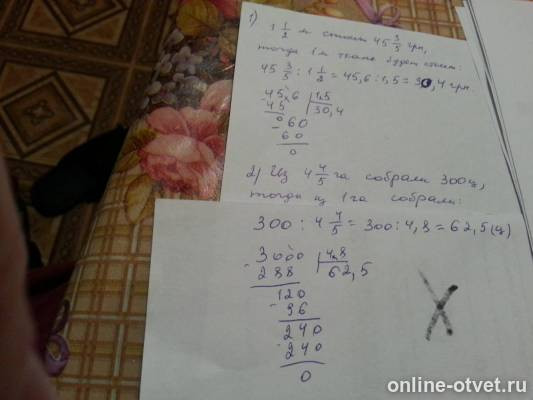 1)
1 1/2 м стоит 45 3/5 грн,
тогда 1 м ткани будет стоить:
45 3/5 : 1 1/2 = 45,6 : 1,5 = 30,4 грн.
45,6 | 1,5
- 45 | 30,4
0
- 60
60
0
2) Из 4 4/5 га собрали 300 ц,
тогда из 1 га собрали:
300 : 4 4/5 = 300 : 4,8 = 62,5 (ц)
- 3000 | 4,8
288 | 62,5
120
- 96
240
- 240
0
X
online-otvet.ru